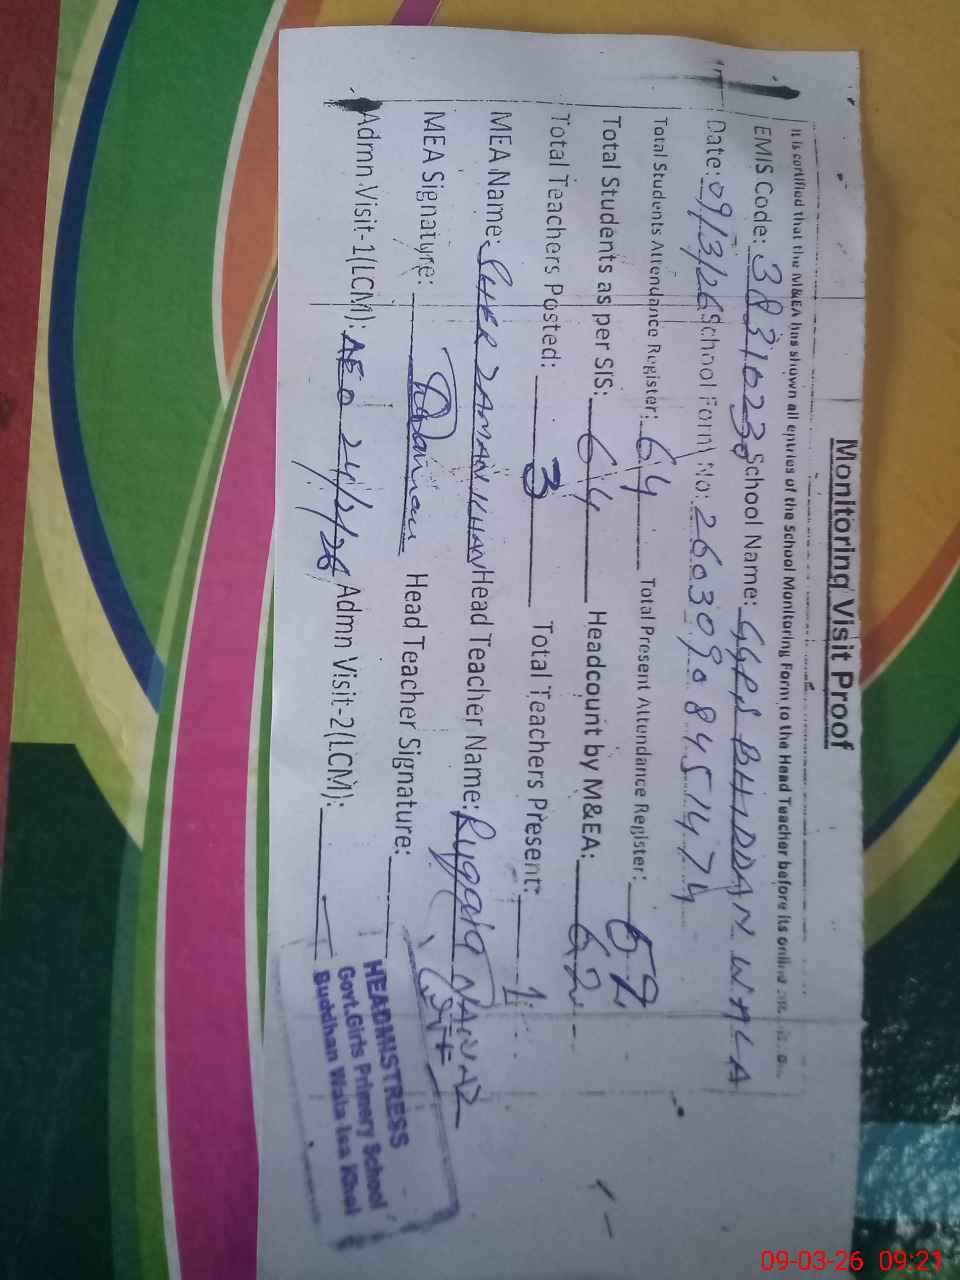 Monitoring Visit Proof
It is certified that the M&EA has shown all entries of the School Monitoring Form to the Head Teacher before its online
EMIS Code: 38310230 School Name: GGPS BHIDDAN WALA
Date: 09/3/26 School Form No: 2603090845 1474
Total Students Attendance Register: 64 Total Present Attendance Register: 62
Total Students as per SIS: 64 Headcount by M&EA: 62
Total Teachers Posted: 3 Total Teachers Present: 1
MEA Name: SHER ZAMAN KHAN Head Teacher Name: Ruqqaia
MEA Signature: Head Teacher Signature:
Admn Visit-1(LCM): AEO 24/2/26 Admn Visit-2(LCM):
HEADMISTRESS
Govt.Girls Primery School
Buddhan Wala Isa Khel
09-03-26 09:21